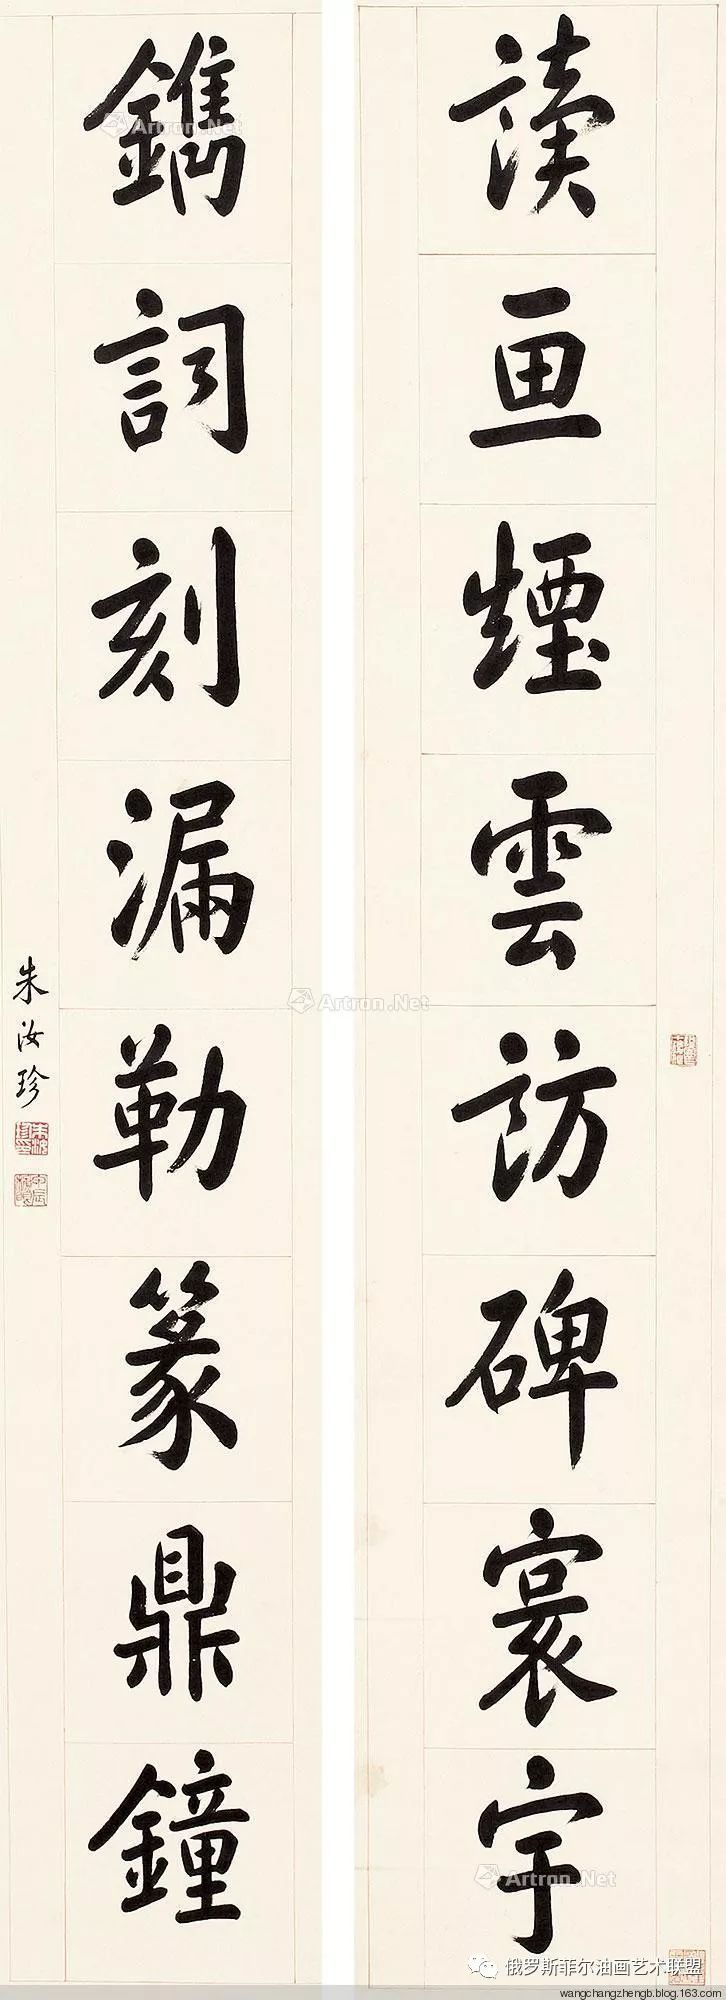 讀画煙雲訪碑寰宇
鐫詞刻漏勒篆鼎鐘
朱汝珍
Artron.Net
Artron.Net
Artron.Net
俄罗斯菲尔油画艺术联盟
wangchangzhengb.blog.163.com